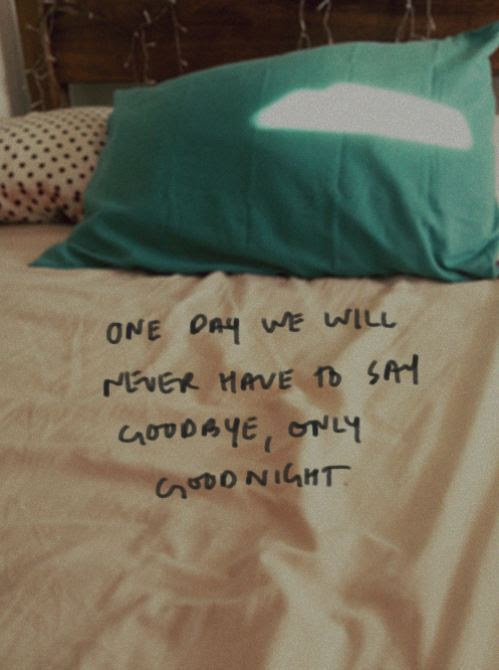 ONE DAY WE WILL
NEVER HAVE TO SAY
GOODBYE, ONLY
GOODNIGHT.